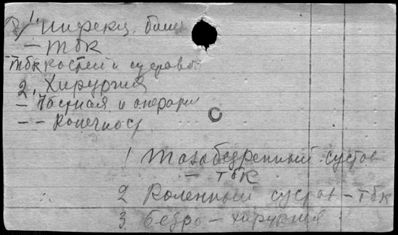 1. Инфекц. боле
– Тбк
Тбк костей и суставов
2. Хирургия
– Частная и операти
– – Конечност
1 Тазобедренный сустав
– тбк
2 Коленный сустав – тбк
3. Бедро – хирургия